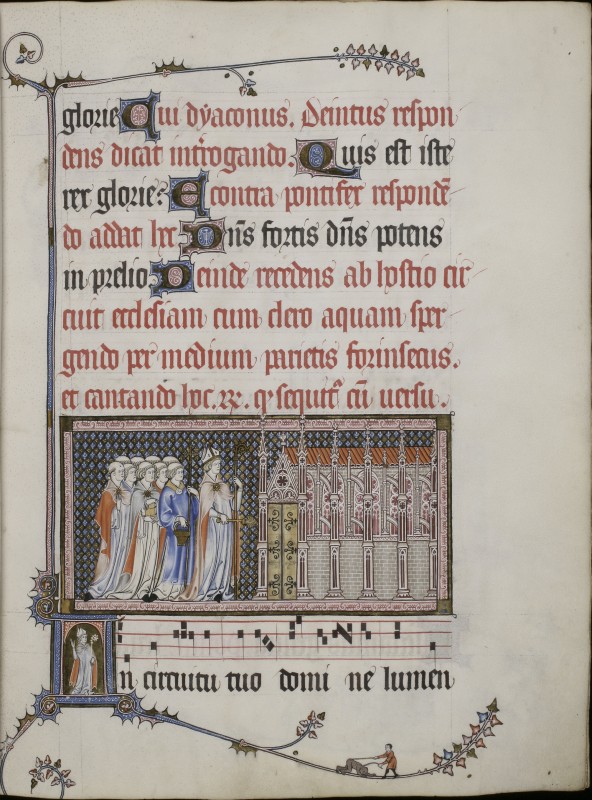 glorie Qui dyaconus. Deintus respon
dens dicat introgando. Quis est iste
rex glorie? Econtra pontifex responde̅
do addat hec Dn̅s fortis dn̅s potens
in prelio Deinde recedens ab hostio cir
cuit ecclesiam cum clero aquam sper
gendo per medium parietis forinsecus.
et cantando hoc. sequit᷑ cu̅ uersu.
In circuitu tuo domi ne lumen